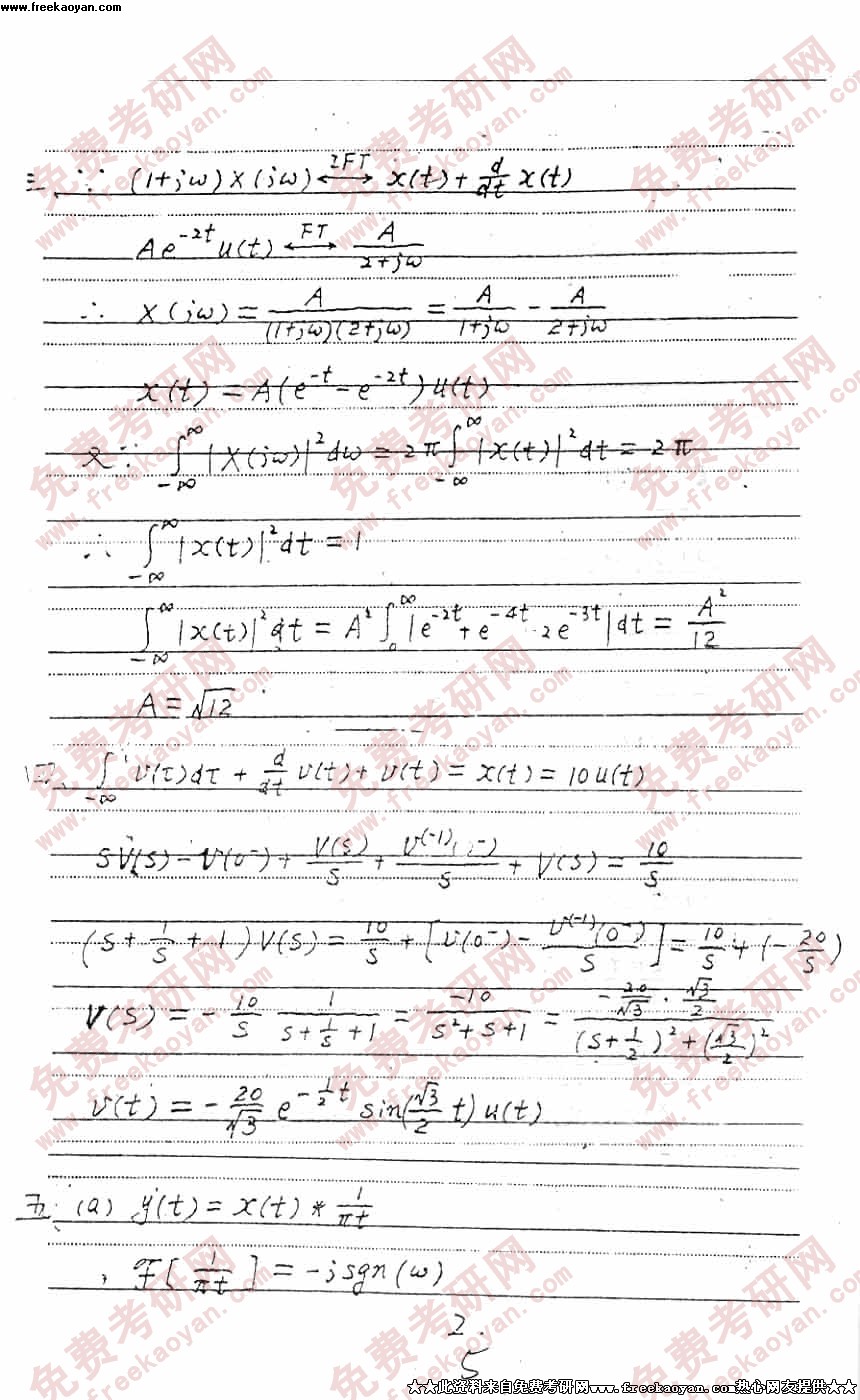 www.freekaoyan.com
三、∵ (1+jω)X(jω) ⟷IFT x(t)+d/dt x(t)
Ae^{-2t}u(t) ⟷FT A/(2+jω)
∴ X(jω) = A/((1+jω)(2+jω)) = A/(1+jω) - A/(2+jω)
x(t) = A(e^{-t}-e^{-2t})u(t)
又∵ ∫_{-∞}^{∞}|X(jω)|²dω = 2π∫_{-∞}^{∞}|x(t)|²dt = 2π
∴ ∫_{-∞}^{∞}|x(t)|²dt = 1
∫_{-∞}^{∞}|x(t)|²dt = A²∫_0^{∞}|e^{-2t}+e^{-4t} 2e^{-3t}|dt = A²/12
A = √12
四、∫_{-∞} v(τ)dτ + d/dt v(t) + v(t) = x(t) = 10u(t)
sV(s) - v(0⁻) + V(s)/s + v^{(-1)}(0⁻)/s + V(s) = 10/s
(s + 1/s + 1)V(s) = 10/s + [v(0⁻) - v^{(-1)}(0⁻)/s] = 10/s + (-20/s)
V(s) = -10/s · 1/(s+1/s+1) = -10/(s²+s+1) = (-20/√3 · √3/2)/((s+1/2)²+(√3/2)²)
v(t) = -20/√3 e^{-1/2 t} sin(√3/2 t)u(t)
五、(a) y(t) = x(t) * 1/πt
, F[1/πt] = -jsgn(ω)
2.
5
★★此资料来自免费考研网www.freekaoyan.com热心网友提供★★
免费考研网
www.freekaoyan.com